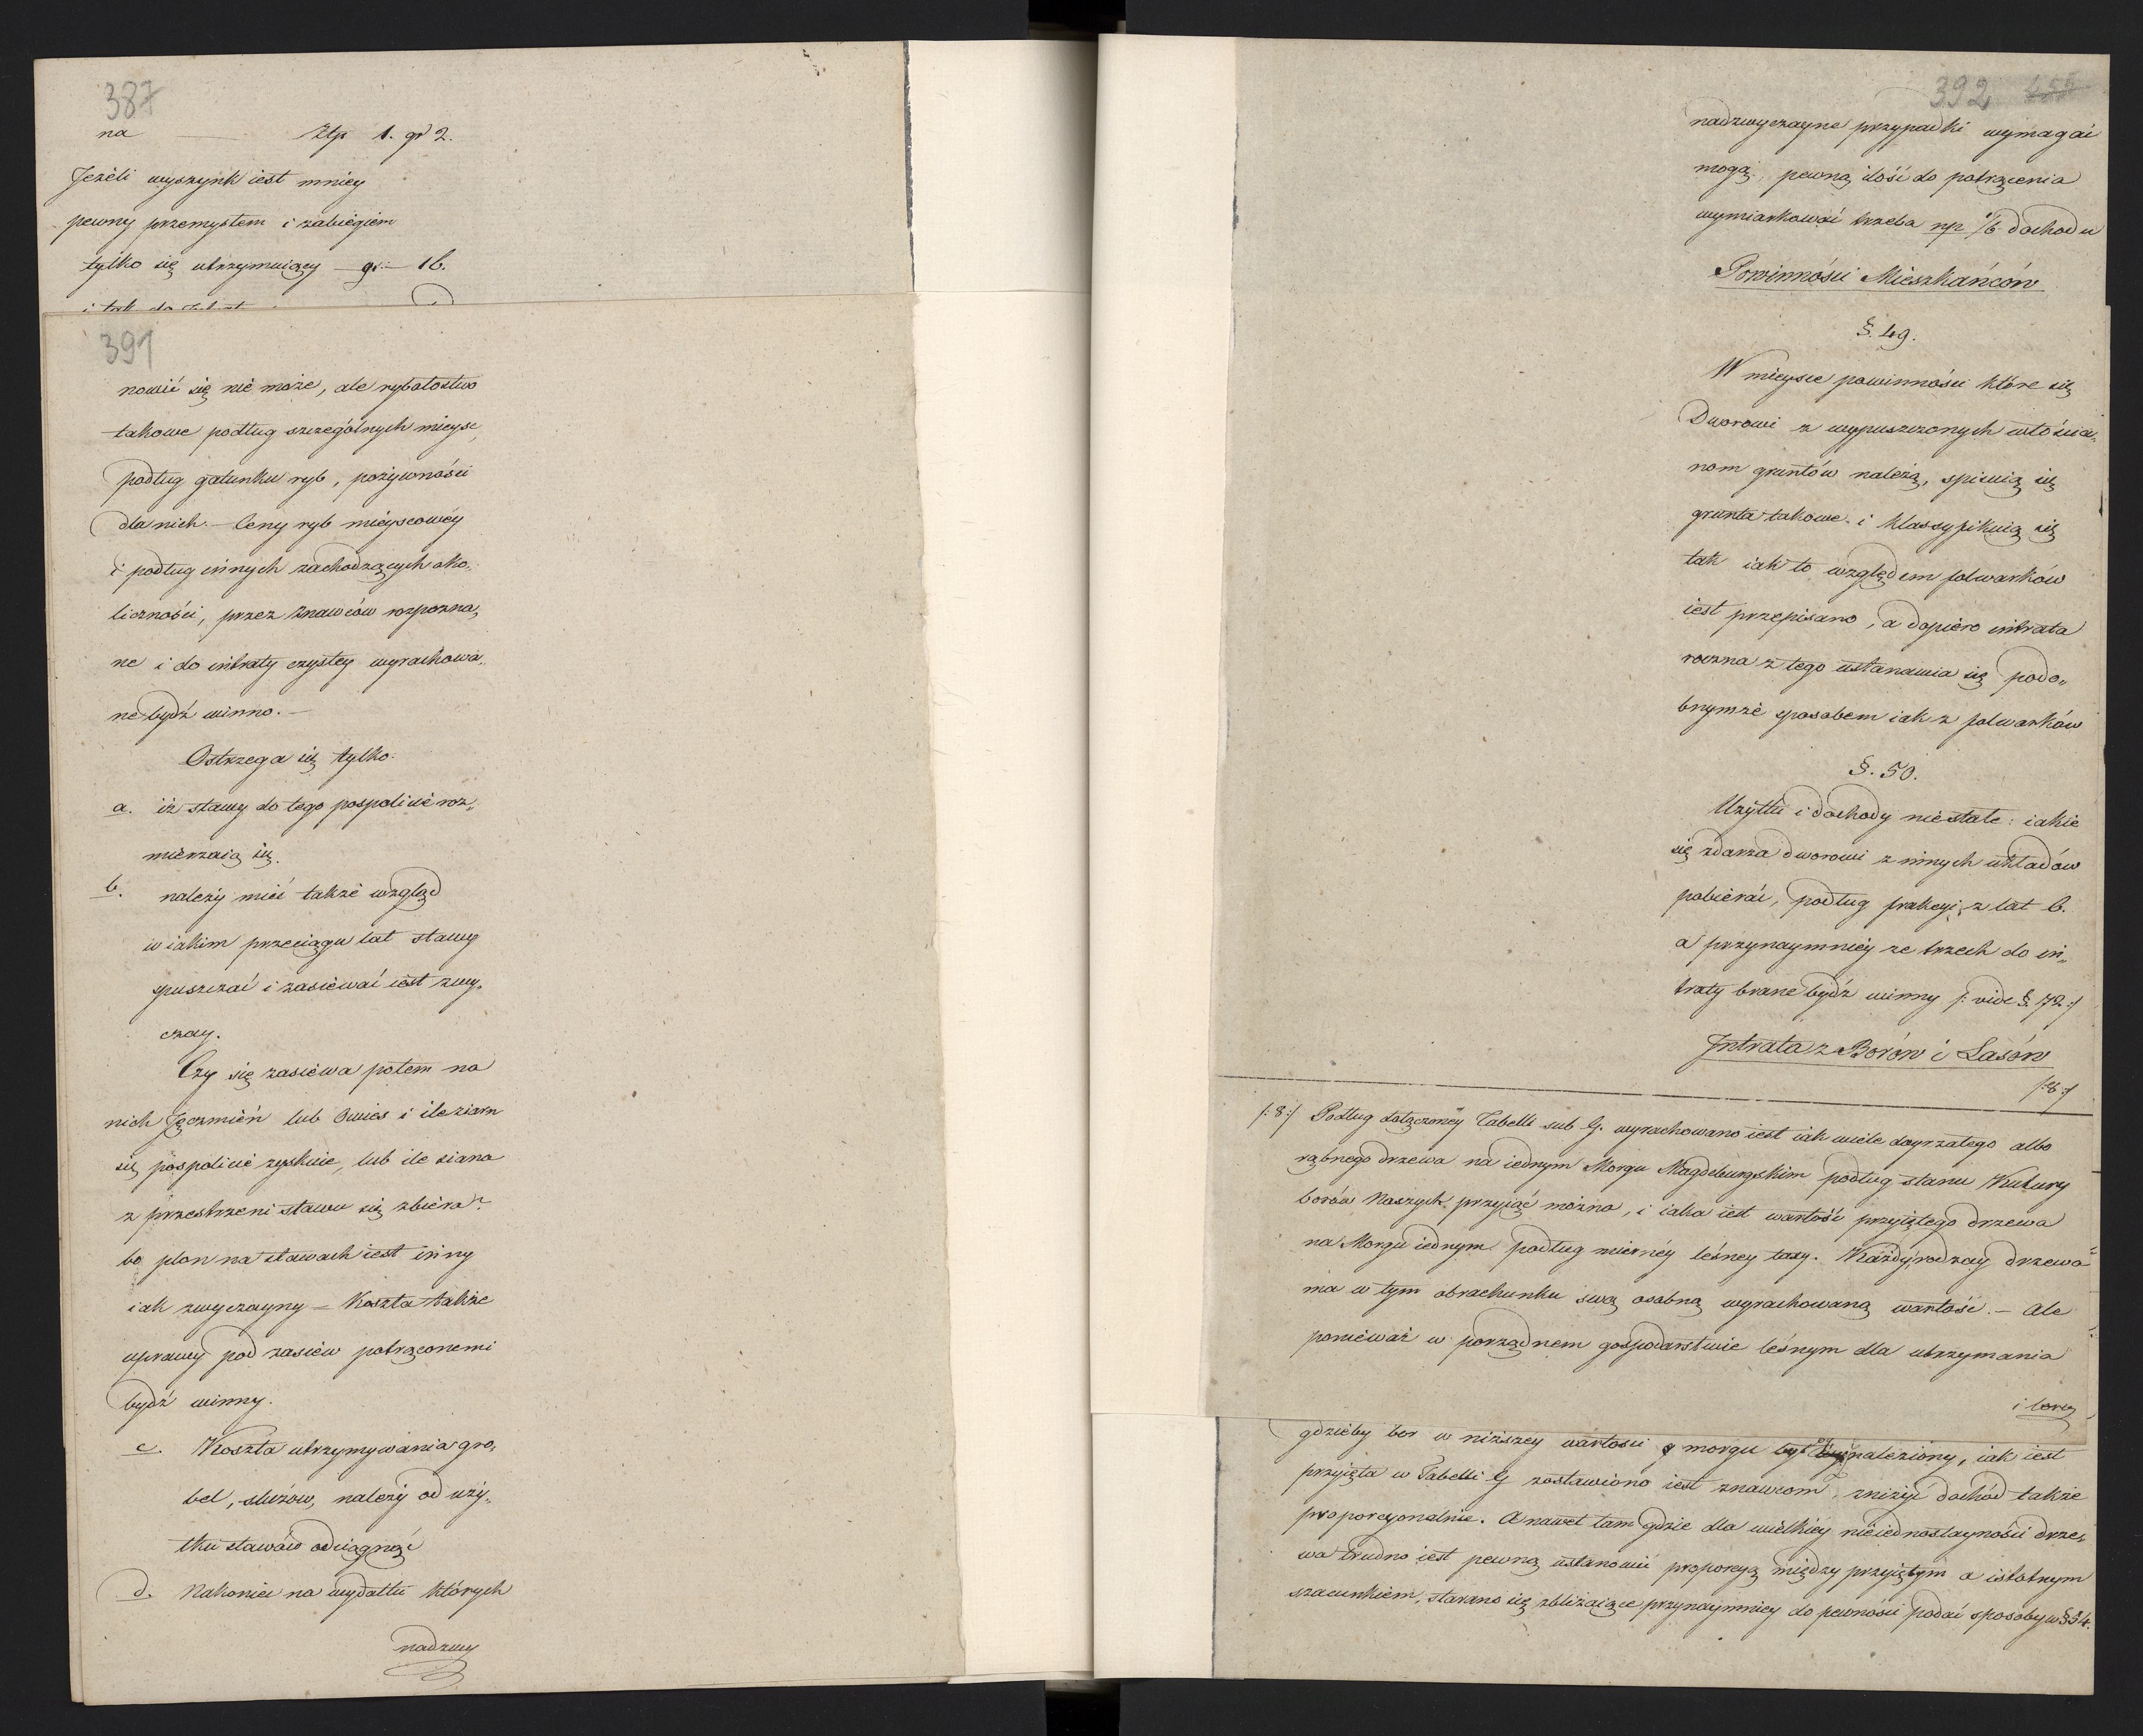 387
na — Złp 1. gr 2.
Jeżéli wyszynk iest mniey
pewny przemysłem i zabiegiem
tylko się utrzymuiący — gr: — 16.
391
nowić się nie może, ale rybołostwo
takowe podług szczególnych mieysc,
podług gatunku ryb, pożywności
dla nich. — Ceny ryb mieyscowéy
i podług innych zachodzących oko„
liczności, przez znawców rozpozna„
ne i do intraty czystey wyrachowa„
ne bydź winno. —
Ostrzega się tylko:
a. iż stawy do tego pospolicie roz„
mierzaią się.
b. należy mieć także wzgląd
w iakim przeciągu lat stawy
spuszczać i zasiewać iest zwy„
czay.
Czy się zasiéwa potem na
nich Jęczmień lub Owies i ile ziarn
się pospolicie zyskuie, lub ile siana
z przestrzeni stawu się zbiéra?
bo plon na stawach iest inny
iak zwyczayny — Koszta także
uprawy pod zasiew potrąconemi
bydź winny.
c. Koszta utrzymywania gro„
bel, sluzów, należy od uży„
tku stawów odciągnąć
d. Nakoniec na wydatki których
nadzwy
392 455
nadzwyczayne przypadki wymagać
mogą, pewną ilość do potrącenia
wymiarkować trzeba np 1/6 dochodu
Powinności Mieszkańców
§. 49.
W mieysce powinności które się
Dworowi z wypuszczonych włościa„
nom gruntów należą, spisuią się
grunta takowe i klassyfikuią się
tak iak to względem folwarków
iest przepisano, a dopiéro intrata
roczna z tego ustanawia się podo„
bnymże sposobem iak z folwarków
§. 50.
Użytki i dochody niestałe: iakie
się zdarza dworowi z innych układów
pobiérać, podług frakcyi z lat 6.
a przynaymniéy ze trzech do in„
traty brane bydź winny /: vide §. 72 :/
Intrata z Borów i Lasów
/:8:/
/:8:/ Podług dołączonéy Tabelli sub G. wyrachowano iest iak wiele doyrzałego albo
rąbnego drzewa na iednym Morgu Magdeburgskim podług stanu Kultury
borów Naszych przyiąć można, i iaka iest wartość przyiętego drzewa
na Morgu iednym podług miernéy leśney taxy. Każdy rodzay drzewa
ma w tym obrachunku swą osobną wyrachowaną wartość. — Ale
poniéważ w porządnem gospodarstwie leśnym dla utrzymania
gdzieby bor w niższey wartości morgu był wynaleziony, iak iest
przyięta w Tabelli G zostawiono iest znawcom, zniżyć dochód także
proporcyonalnie. A nawet tam gdzie dla wielkiéy nieiednostayności drze„
wa trudno iest pewną ustanowić proporcyą między przyiętym a istotnym
szacunkiem, starano się zbliżaiące przynaymniey do pewności podać sposoby w § 54.